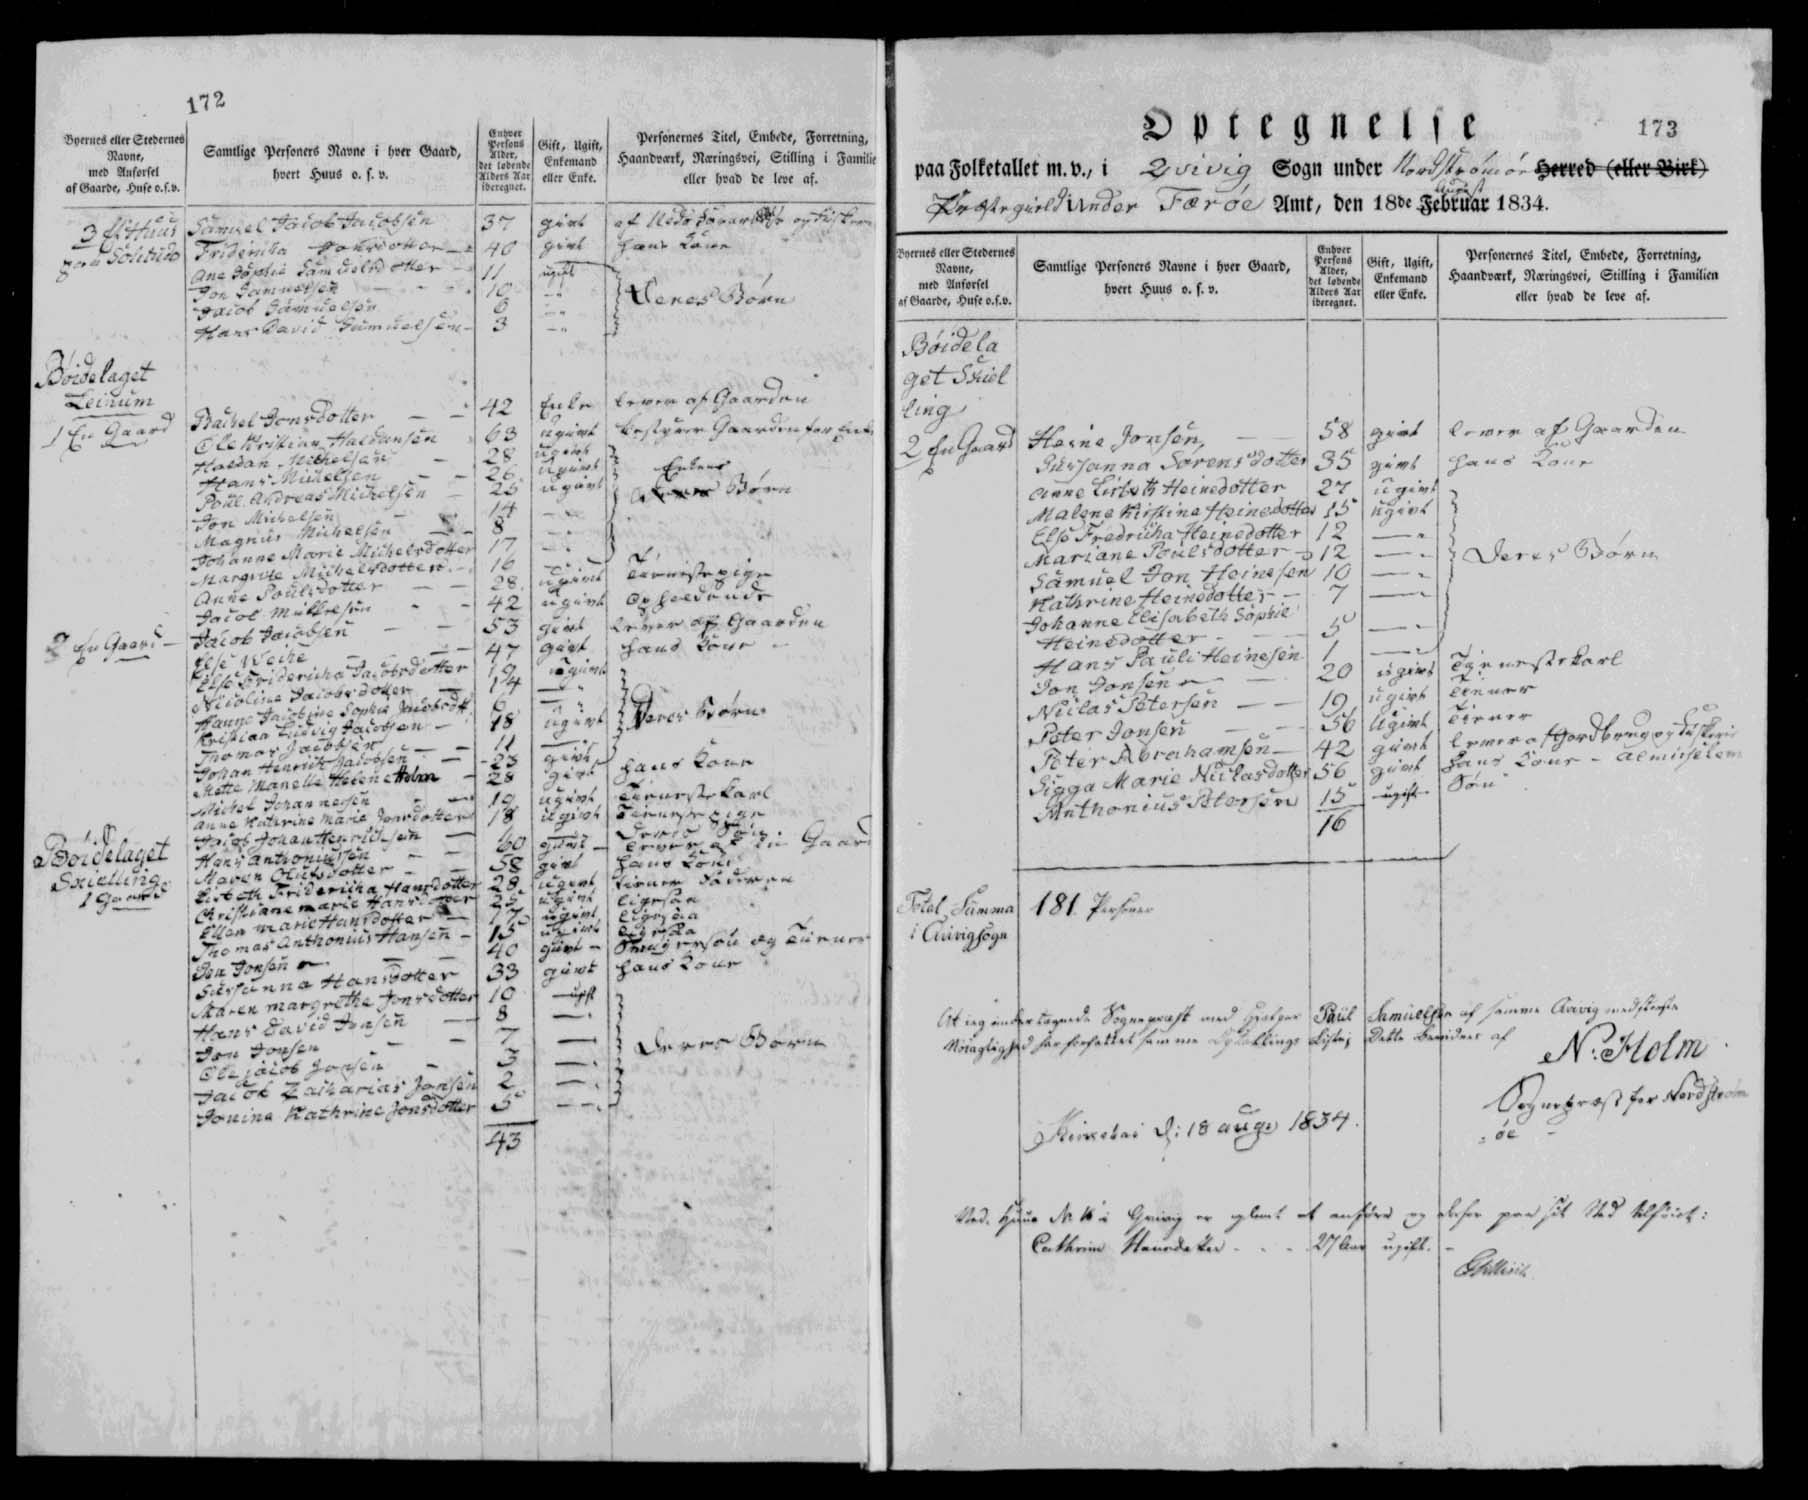 172
Byernes eller Stedernes Navne, med Anførsel af Gaarde, Huse o.s.v.
Samtlige Personers Navne i hver Gaard, hvert Huus o. s. v.
Enhver Persons Alder, det løbende Alders Aar iberegnet.
Gift, Ugift, Enkemand eller Enke.
Personernes Titel, Embede, Forretning, Haandværk, Næringsvei, Stilling i Familie eller hvad de leve af.
3 Et Huus Samuel Jacob Jacobsen 37 givt
Solitudo Friderica 40 givt hans Kone
Ane Sophie Samuelsdotter 11 ugift
Jon Samuelsen 10 Deres Børn
Jacob Samuelsen 6
Hans David Samuelsen 3
Bóidelaget
Leinum
Rachel Jonsdotter 42 Enke lever af Gaarden
1 En Gaard Ole Kristian Haldansen 63 ugivt bestyrer Gaarden for
Haldan Michelsen 28 ugivt
Hans Michelsen 26 ugivt Enkens
Poul Andreas Michelsen 25 ugivt Børn
Jon Michelsen 14
Magnus Michelsen 8
Johanne Marie Michelsdotter 17
Margrete Michelsdotter 16
Anne Poulsdotter 28 ugivt Tienestepige
Jacob 42 ugivt
En Gaard Jacob Jacobsen 53 givt lever af Gaarden
Else Weihe 47 givt hans Kone
Else Fridericha Jacobsdotter 19 ugivt
Nicoline Jacobsdotter 14
Hanne Jacobine Sophie Jacobsdtt 6 Deres Børn
Kristian Ludvig Jacobsen 18 ugivt
Thomas Jacobsen 11
Johan Henrich Jacobsen 23 givt
Mette Manelle Helene Holm 28 givt hans Kone
Michel Johannesen 19 ugivt Tienestekarl
Anne Kathrine Marie Jonsdotter 18 ugivt Tienestepige
Jacob Johan Henrichsen
Bóidelaget Hans Anthoniussen 60 givt
Skiælling Maren Olufsdotter 58 givt hans Kone
1 Gaard Lisbeth Fridericha Hansdotter 28 ugivt
Christiane Marie Hansdotter 25 ugivt ligesaa
Ellen Marie Hansdotter 17 ugivt ligesaa
Thomas Anthonius Hansen 15 ugivt ligesaa
Jon Jonsen 40 givt
Sussanna Hansdotter 33 givt hans Kone
Maren Margrethe Jonsdotter 10 ugift
Hans David Jonsen 8
Jon Jonsen 7 Deres Børn
Ole Jacob Jonsen 3
Jacob Zacharias Jonsen 2
Jonine Kathrine Jonsdotter 5
43
Optegnelse
173
paa Folketallet m. v., i Qvivig Sogn under Nordstrómóe Herred (eller Birk)
Præstegield under Færöe Amt, den 18de Februar August 1834.
Byernes eller Stedernes Navne, med Anførsel af Gaarde, Huse o.s.v.
Samtlige Personers Navne i hver Gaard, hvert Huus o. s. v.
Enhver Persons Alder, det løbende Alders Aar iberegnet.
Gift, Ugift, Enkemand eller Enke.
Personernes Titel, Embede, Forretning, Haandværk, Næringsvei, Stilling i Familien eller hvad de leve af.
Bóidela
get Skiel
ling
2 En Gaard Heine Jonsen 58 givt lever af Gaarden
Sussanna Sørensdotter 35 givt hans Kone
Anne Lisbeth Heinedotter 27 ugivt
Malene Kirstine Heinedotter 15 ugivt
Else Fredricha Heinedotter 12
Mariane Poulsdotter 12 Deres Børn
Samuel Jon Heinesen 10
Kathrine Heinedotter 7
Johanne Elisabeth Sophie
Heinedotter 5
Hans Pauli Heinesen 1
Jon Jonsen 20 ugivt Tienestekarl
Niclas Petersen 19 ugivt Tiener
Peter Jonsen 56 Ugivt Tiener
Peter Abrahamsen 42 givt lever af Jordbrug og Fiskerie
Sigga Marie Niclasdotter 56 givt hans Kone
Anthonius Petersen 15 ugift Søn
16
Total Summa 181 Personer
i Qvivig sogn
At ieg undertegnede Sognepræst med Hielper Paul Samuelsen af samme Qvivig med største
Nøiagtighed har forfattet samme Optællings Liste; Dette bevidnes af
N: Holm
Sognepræst for Nordstróm
óe
Kirkebøi d: 18 aug: 1834.
Ved Huus No 16 i Qvivig er glemt at anføre og derfor paa sit Sted tilføiet:
Cathrine Hansdatter 27 Aar ugift.